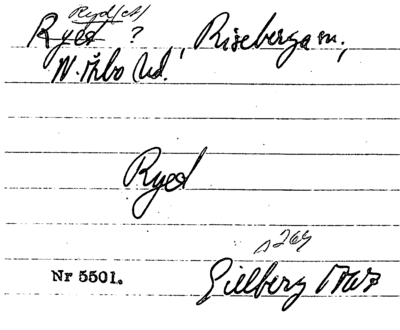 Ryd(et)
Ryed ? Riseberga sn,
N. Åsbo hd.
Ryed
s 269
Nr 5501. Gillberg 1767